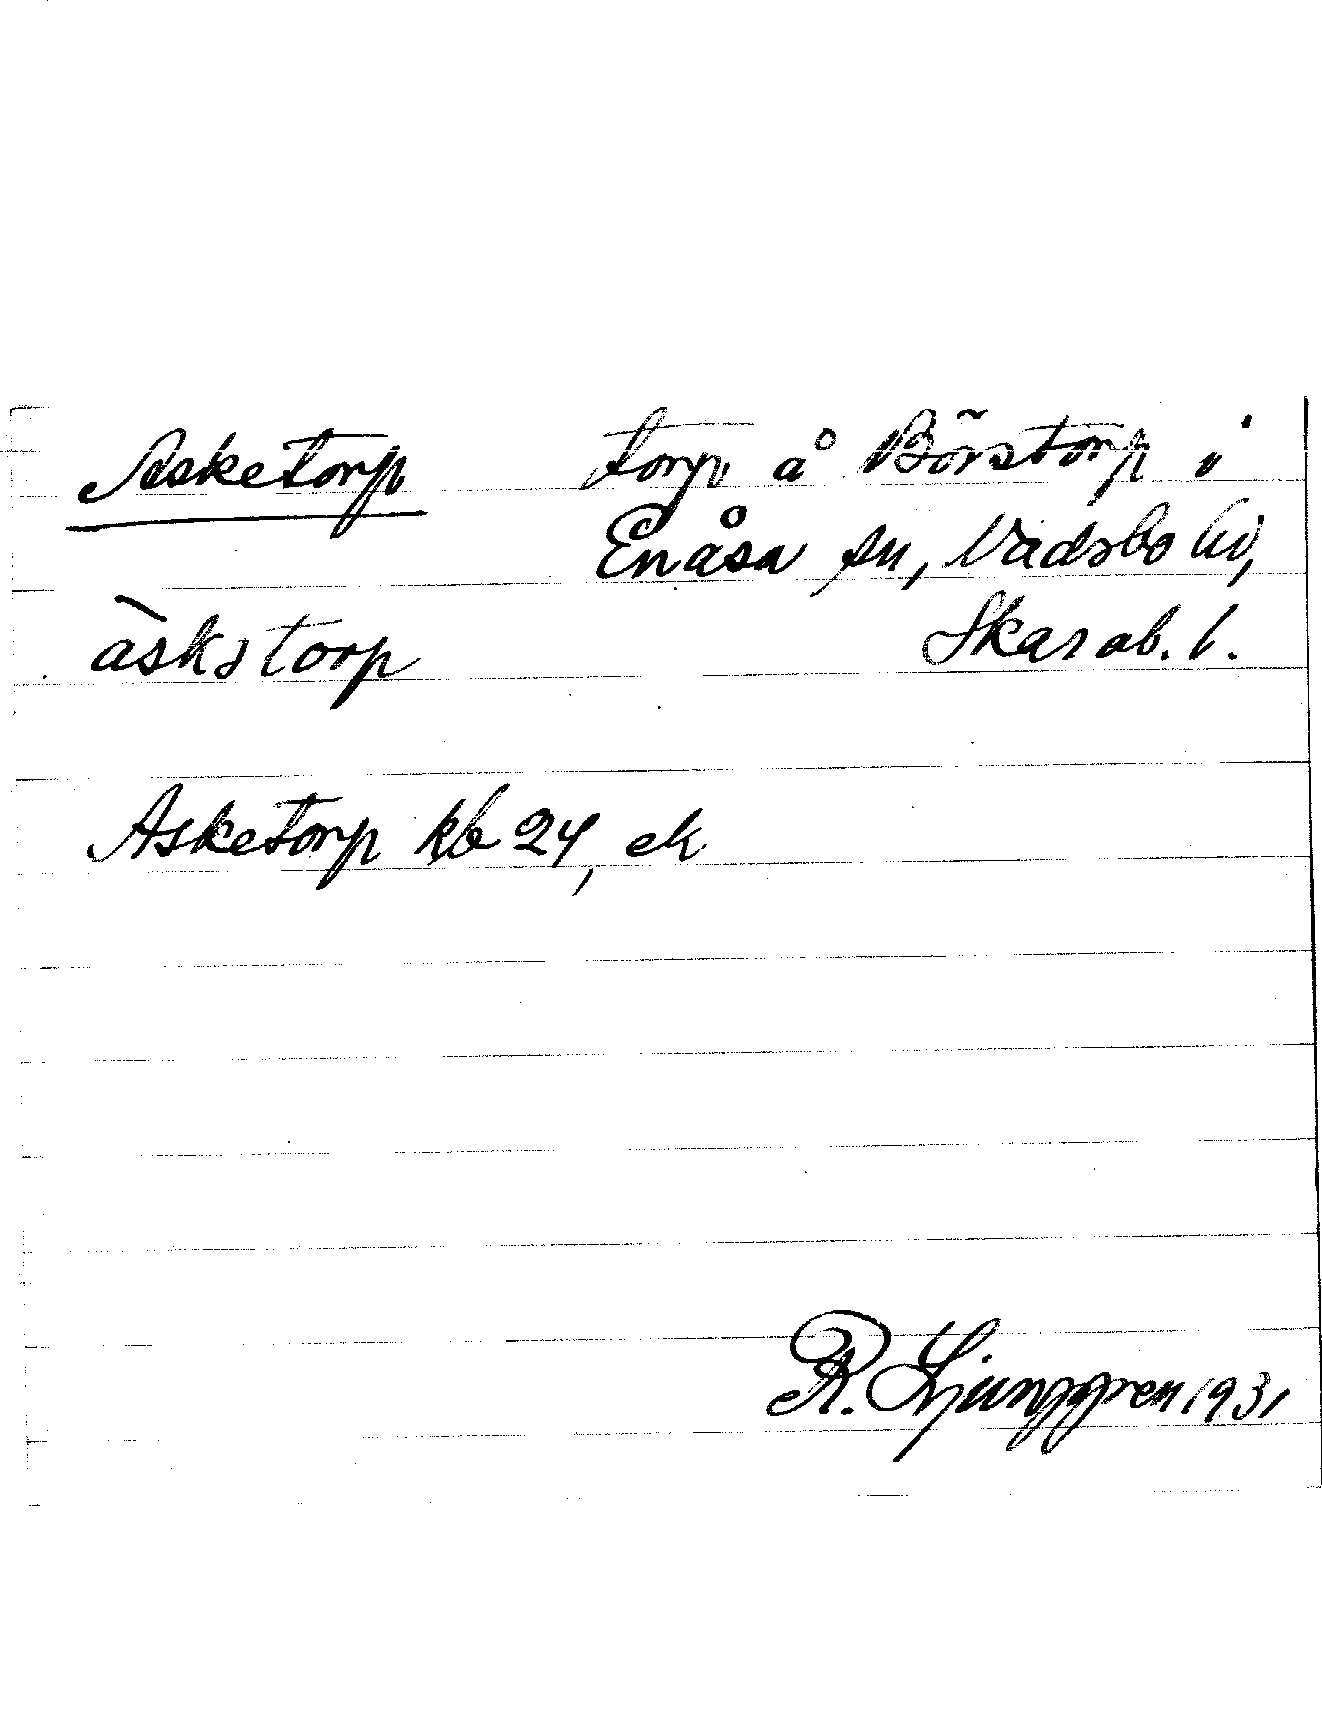 Asketorp torp å Börstorp i
Enåsa sn, Vadsbo hd,
àskətorp Skarab. l.
Asketorp kb 24, ek
R. Ljunggren 1931